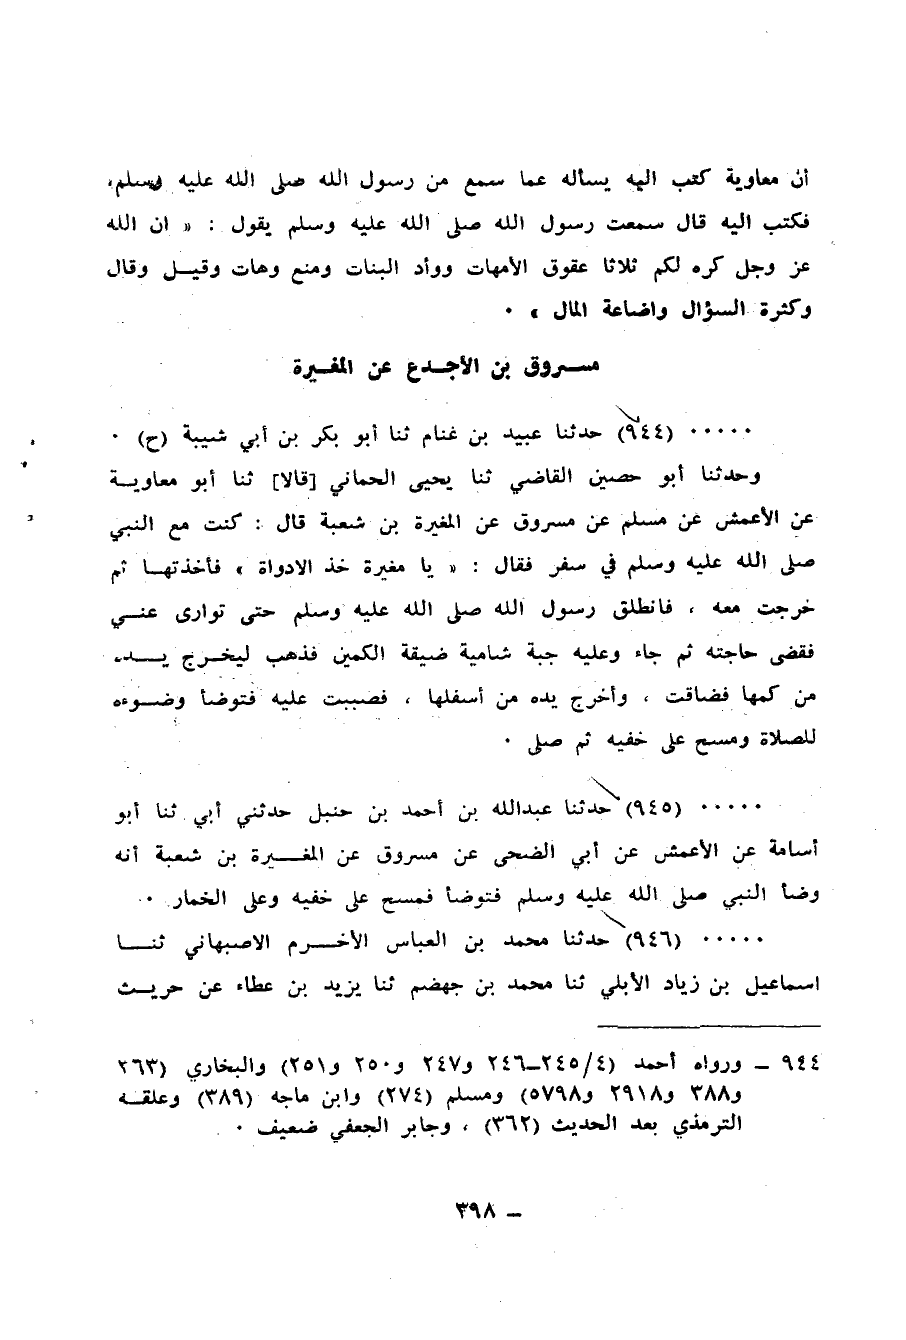 أن معاوية كتب اليه يسأله عما سمع من رسول الله صلى الله عليه وسلم،
فكتب اليه قال سمعت رسول الله صلى الله عليه وسلم يقول : « ان الله
عز وجل كره لكم ثلاثا عقوق الأمهات ووأد البنات ومنع وهات وقيـل وقال
وكثرة السؤال واضاعة المال » ٠
مســروق بن الأجــدع عن المغــيرة
٠٠٠٠٠ (٩٤٤) حدثنا عبيد بن غنام ثنا أبو بكر بن أبي شيبة (ح) ٠
وحدثنا أبو حصين القاضي ثنا يحيى الحماني [قالا] ثنا أبو معاويــة
عن الأعمش عن مسلم عن مسروق عن المغيرة بن شعبة قال : كنت مع النبي
صلى الله عليه وسلم في سفر فقال : « يا مغيرة خذ الادواة » فأخذتهــا ثم
خرجت معه ، فانطلق رسول الله صلى الله عليه وسلم حتى توارى عنــي
فقضى حاجته ثم جاء وعليه جبة شامية ضيقة الكمين فذهب ليخرج يــده
من كمها فضاقت ، وأخرج يده من أسفلها ، فصببت عليه فتوضأ وضــوءه
للصلاة ومسح على خفيه ثم صلى ٠
٠٠٠٠٠ (٩٤٥) حدثنا عبدالله بن أحمد بن حنبل حدثني أبي ثنا أبو
أسامة عن الأعمش عن أبي الضحى عن مسروق عن المغــــيرة بن شعبة أنه
وضأ النبي صلى الله عليه وسلم فتوضأ فمسح على خفيه وعلى الخمار ٠
٠٠٠٠٠ (٩٤٦) حدثنا محمد بن العباس الأخــرم الاصبهاني ثنــا
اسماعيل بن زياد الأبلي ثنا محمد بن جهضم ثنا يزيد بن عطاء عن حريــث
٩٤٤ ــ ورواه أحمد (٤/ ٢٤٥ــ٢٤٦ و٢٤٧ و٢٥٠ و٢٥١) والبخاري (٣٦٣
و٣٨٨ و٢٩١٨ و٥٧٩٨) ومسلم (٢٧٤) وابن ماجه (٣٨٩) وعلقــه
الترمذي بعد الحديث (٣٦٢) ، وجابر الجعفي ضعيف ٠
ــ ٣٩٨